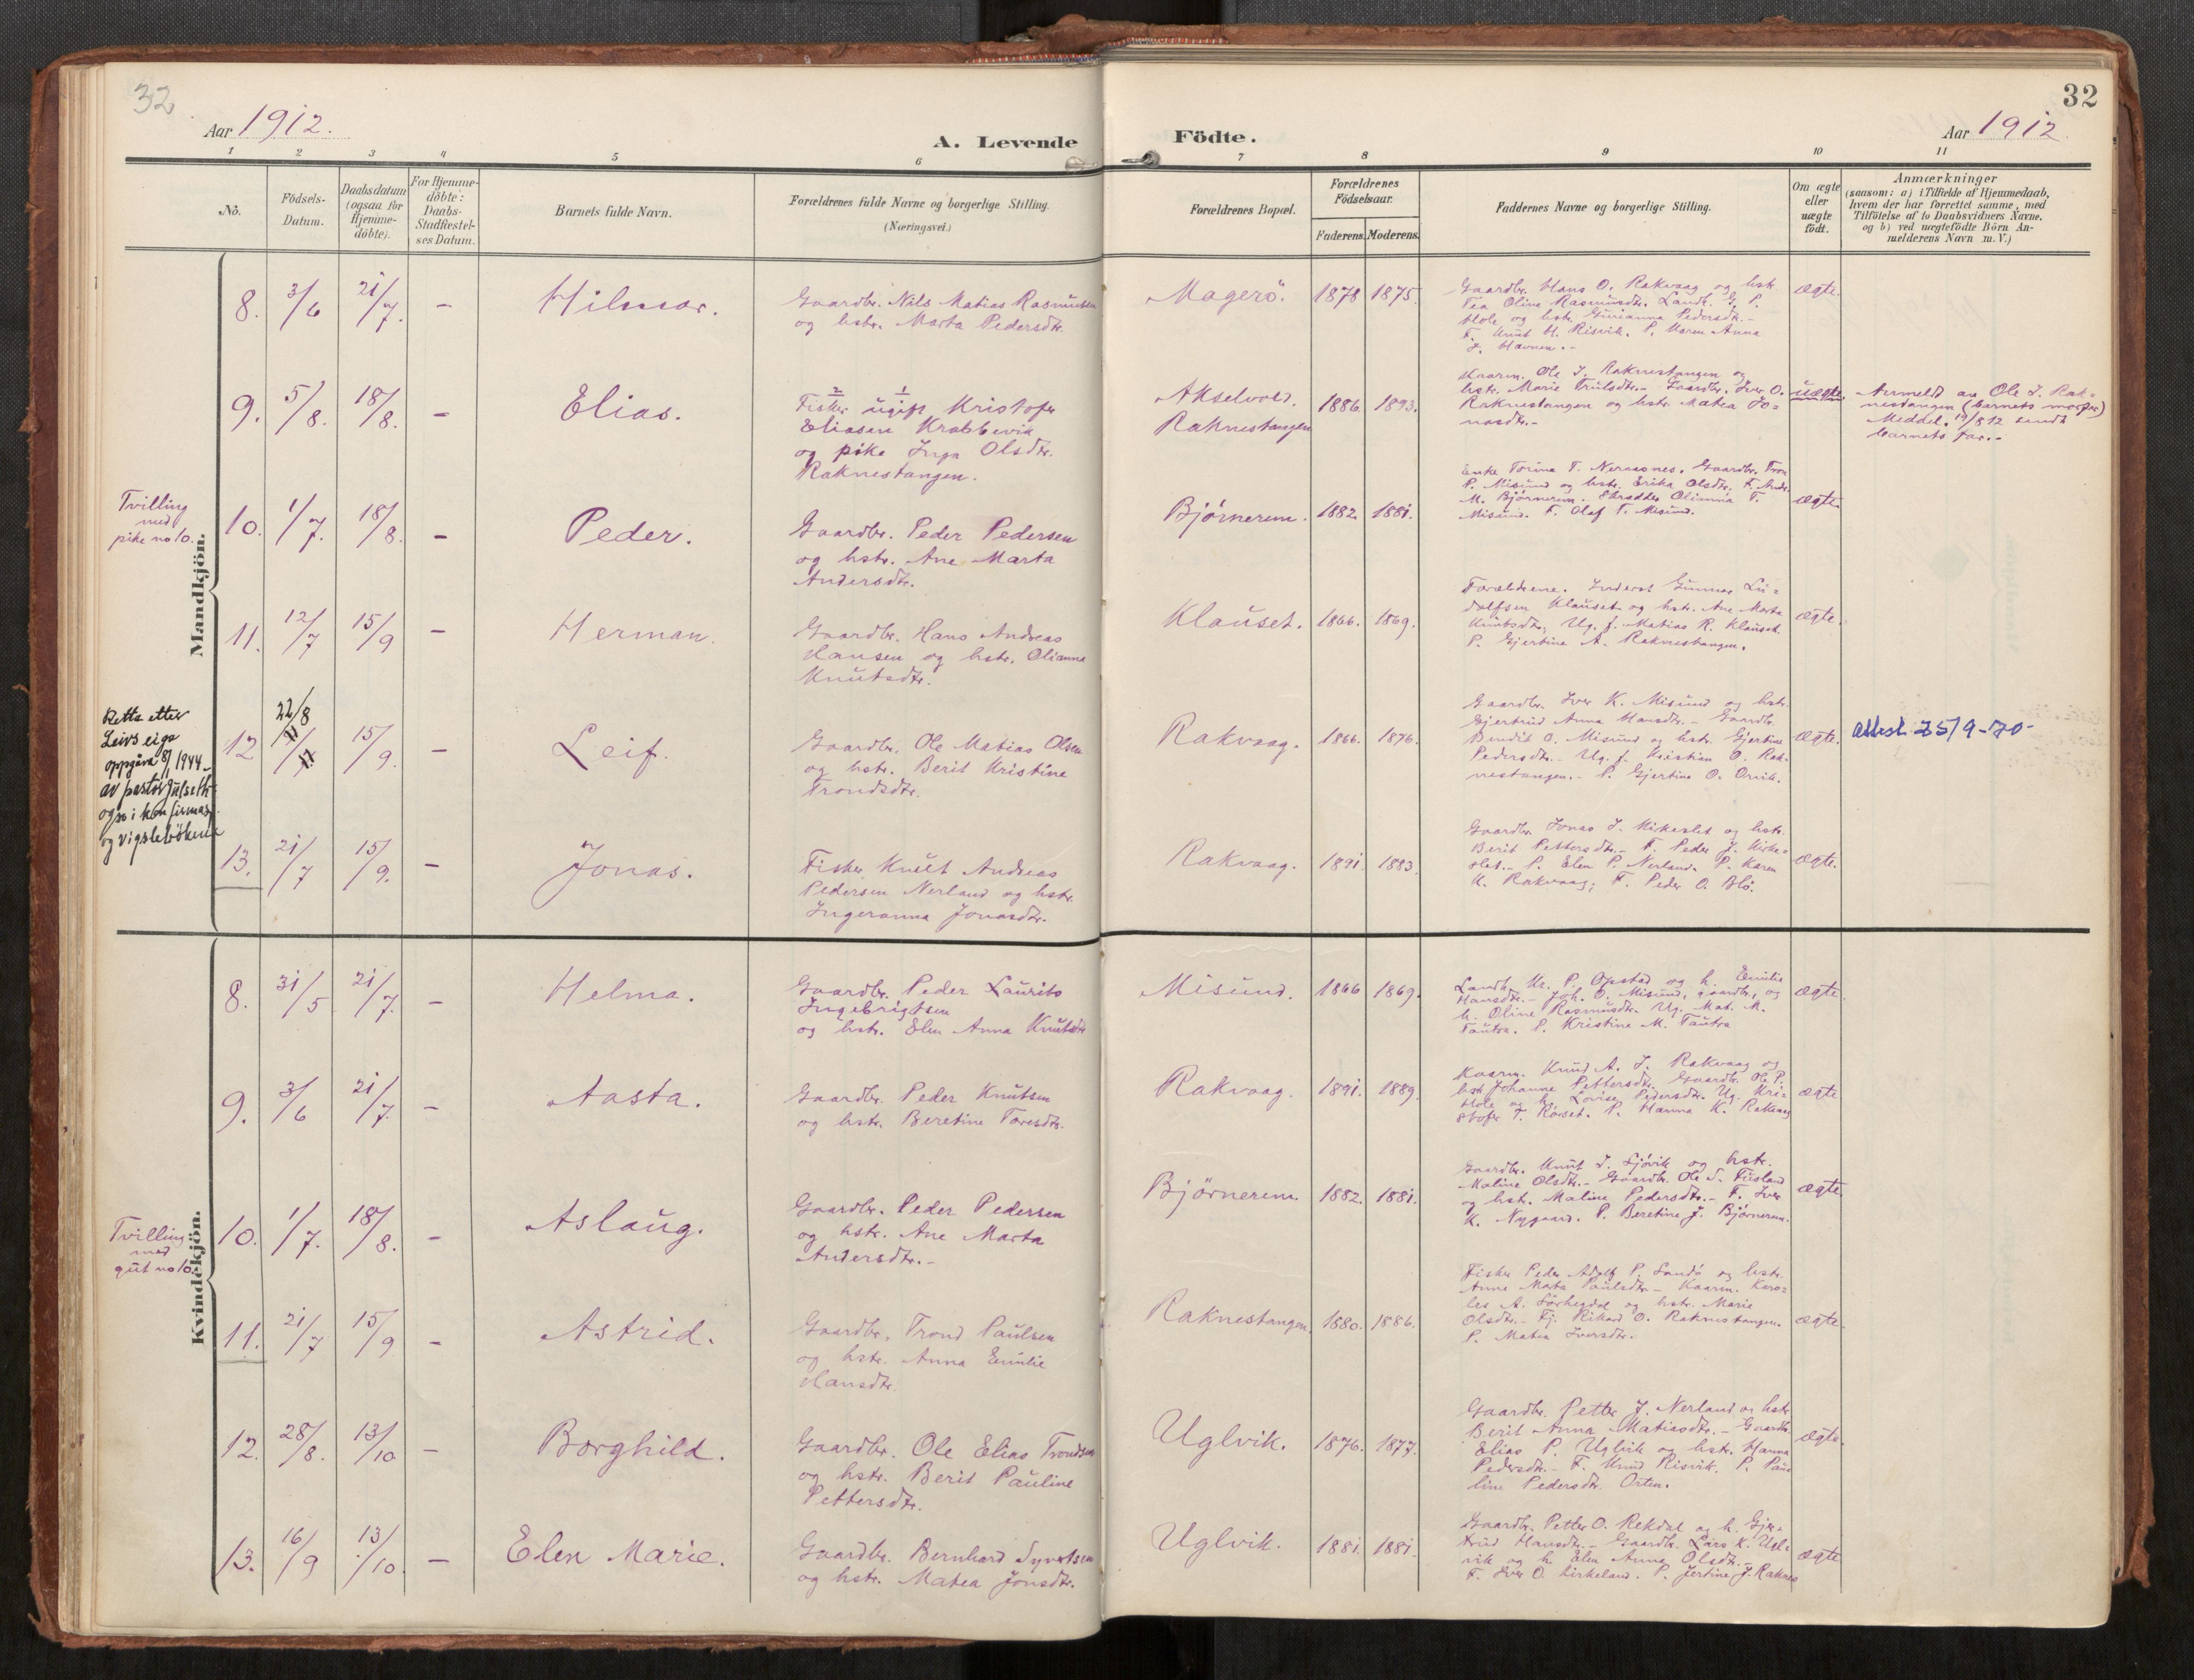 32
Aar 1912.
A. Levende
Födte.
Aar 1912.
32
1 2 3 4 5 6 7 8 9 10 11
No.
Födsels-
Datum.
Daabsdatum
(ogsaa for
Hjemme-
döbte).
For Hjemme-
döbte:
Daabs-
Stadfæstel-
ses Datum.
Barnets fulde Navn.
Forældrenes fulde Navne og borgerlige Stilling.
(Næringsvei.)
Forældrenes Bopæl.
Forældrenes
Födselsaar.
Faderens. Moderens.
Faddernes Navne og borgerlige Stilling.
Om ægte
eller
uægte
födt.
Anmærkninger
(saasom: a) i Tilfælde af Hjemmedaab,
hvem der har forrettet samme, med
Tilföielse af to Daabsvidners Navne.
og b) ved uægtefödte Börn An-
melderens Navn m. V.)
Mandkjön.
8. 3/6 21/7. - Hilmar.
Gaardbr. Nils Matias Rasmussen
og hstr. Marta Pedersdtr.
Magerö. 1878 1875.
Gaardbr. Hans O. Rakvaag og hstr.
Tea Oline Rasmusdtr. Landh. G. P.
Hole og hstr. Gurianna Pedersdtr. -
F. Knut H. Risvik. P. Maren Anna
J. Havnen. -
ægte.
9. 5/8. 18/8. - Elias.
2 1
Fisker ugift Kristofer
Eliasen Krabbevik
og pike Inga Olsdtr.
Raknestangen.
Akselvold.
Raknestangen
1886. 1893.
Kaarm. Ole I. Raknestangen og
hstr. Marie Trulsdtr. - Gaardbr. Iver O.
Raknestangen og hstr. Matea Jo-
nasdtr. -
uægte.
Anmeldt av Ole I. Rak-
nestangen (barnets morfar)
Meddel. 19/8 12 sendt
barnets far. -
Tvilling
med
pike no 10.
10. 1/7. 18/8. - Peder.
Gaardbr. Peder Pedersen
og hstr. Ane Marta
Andersdtr.
Bjørnerem. 1882 1881.
Enke Torina T. Neraasnes. Gaardbr. Tron
P. Misund og hstr. Erika Olsdtr. F. Andr.
M. Bjørnerem. Skrædder Olianna T.
Misund. F. Olaf T. Misund.
ægte.
11. 12/7 15/9 - Herman.
Gaardbr. Hans Andreas
Hansen og hstr. Olianna
Knutsdtr.
Klauset. 1866. 1869.
Forældrene. Inderst Gunnar Lu-
dolfsen Klauset og hstr. Ane Marta
Knutsdtr. Ug. f. Matias R. Klauset.
P. Gjertine A. Raknestangen.
ægte.
Retta etter
Leivs eiga
oppgåva 8/1944
av pastor Julseth
ogso i konfirmas.
og vigslebökene
22/8
12 15/9. - Leif.
Gaardbr. Ole Matias Olsen
og hstr. Berit Kristine
Trondsdtr.
Rakvaag. 1866. 1876.
Gaardbr. Iver K. Misund og hstr.
Gjertrud Anna Hansdtr. - Gaardbr.
Bendik O. Misund og hstr. Gjertine
Pedersdtr. - Ug. f. Kristian O. Rak-
nestangen. - P. Gjertine O. Orvik.
ægte. attest 25/9-70-
13. 21/7 15/9. - Jonas.
Fisker Knut Andreas
Pedersen Nerland og hstr.
Ingeranna Jonasdtr.
Rakvaag. 1891. 1883.
Gaardbr. Jonas J. Kirkeslet og hstr.
Berit Pettersdtr. - F. Peder J. Kirke-
slet. - P. Elen P. Nerland. P. Karen
K. Rakvaag; F. Peder O. Blö.
ægte.
Kvindekjön.
8. 31/5 21/7. - Helma.
Gaardbr. Peder Laurits
Ingebrigtsen
og hstr. Elen Anna Knutsdtr
Misund. 1866 1869.
Landh. Kr. P. Opstad og h. Emilie
Hansdtr. - Joh. O. Misund, gaardbr., og
h. Oline Rasmusdtr. Ug. Mat. M.
Tautra. P. Kristine M. Tautra
ægte.
9. 3/6 21/7. - Aasta.
Gaardbr. Peder Knutsen
og hstr. Beretine Toresdtr.
Rakvaag. 1891. 1889.
Kaarm. Knud A. I. Rakvaag og
hstr Johanne Pettersdtr. Gaardbr. Ole P.
Hole og h. Lovise Pedersdtr. Ug. Kri-
stofer T. Rörset. P. Hanna K. Rakvaag
ægte
Tvilling
med
gut no 10.
10. 1/7. 18/8. - Aslaug.
Gaardbr. Peder Pedersen
og hstr. Ane Marta
Andersdtr. -
Bjørnerem. 1882. 1881.
Gaardbr. Knut I. Sjövik og hstr.
Maline Olsdtr. - Gaardbr. Ole S. Füsland
og hst. Maline Pedersdtr. - F. Iver
K. Nygaard. P. Beretine J. Bjørnerem.
ægte.
11. 21/7 15/9 - Astrid.
Gaardbr. Trond Paulsen
og hstr. Anna Emilie
Hansdtr.
Raknestangen. 1880. 1886.
Fisker Peder Adolf P. Sandö og hstr.
Anne Mate Paulsdtr. - Kaarm. Karo-
les A. Sörhegdal og hstr. Marie
Olsdtr. - Fj. Rikard O. Raknestangen.
P. Matea Iversdtr.
ægte.
12. 28/8. 13/10 - Borghild.
Gaardbr. Ole Elias Trondsen
og hstr. Berit Pauline
Pettersdtr.
Uglvik. 1876. 1877.
Gaardbr. Petter J. Nerland og hstr
Berit Anna Matiasdtr. - Gaardbr.
Elias P. Uglvik og hstr. Hanna
Pedersdtr. - F. Knud Risvik. P. Pau
line Pedersdtr. Orten.
ægte.
13. 16/9 13/10. - Elen Marie.
Gaardbr. Bernhard Syvertsen
og hstr. Matea Jonsdtr.
Uglvik. 1881. 1881.
Gaardbr. Petter O. Rekdal og h. Gjer-
trud Hansdtr. - Gaardbr. Lars K. Ugl-
vik og h. Elen Anna Olsdtr. -
F. Iver O. Lirkeland. P. Jertine J. Raknes
ægte